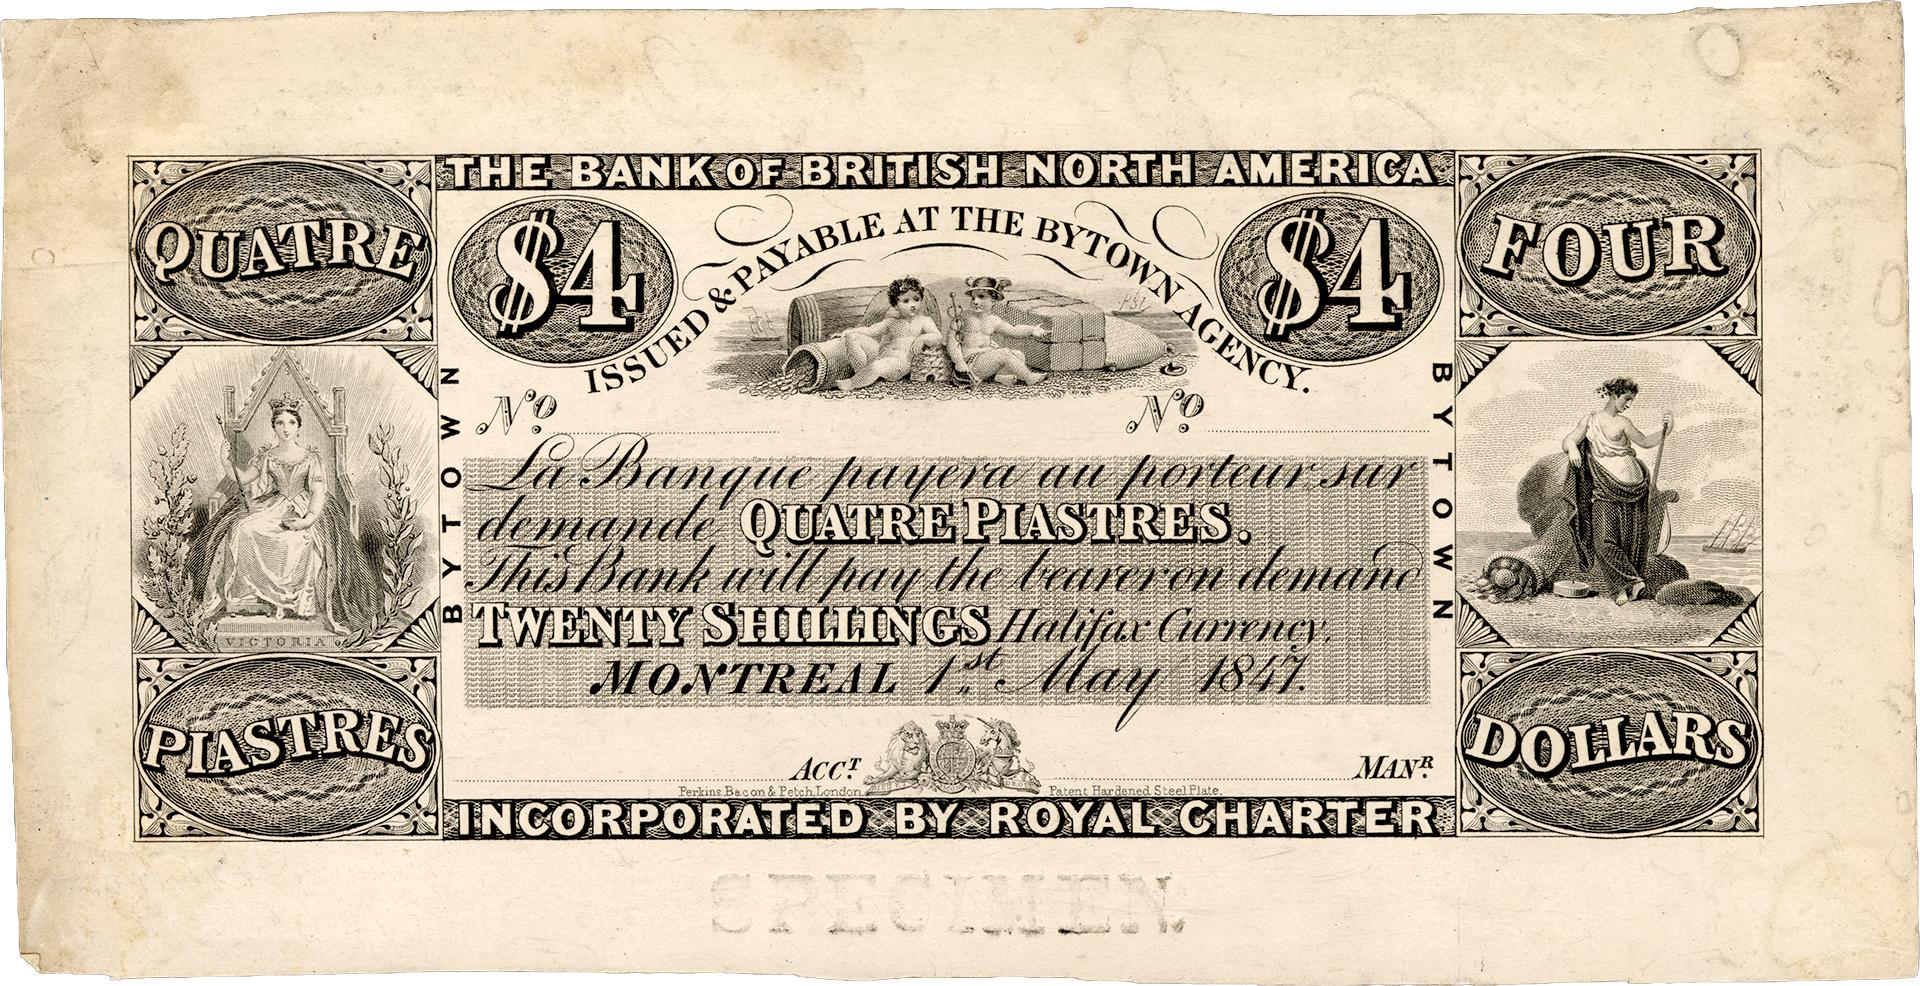 THE BANK OF BRITISH NORTH AMERICA
QUATRE
$4
ISSUED & PAYABLE AT THE BYTOWN AGENCY.
$4
FOUR
BYTOWN
BYTOWN
No.
No.
La Banque payera au porteur sur
demande QUATRE PIASTRES.
This Bank will pay the bearer on demand
TWENTY SHILLINGS Halifax Currency.
MONTREAL 1st May 1847.
VICTORIA
PIASTRES
DOLLARS
ACCT.
MANR.
Perkins, Bacon & Petch, London.
Patent Hardened Steel Plate.
INCORPORATED BY ROYAL CHARTER
SPECIMEN